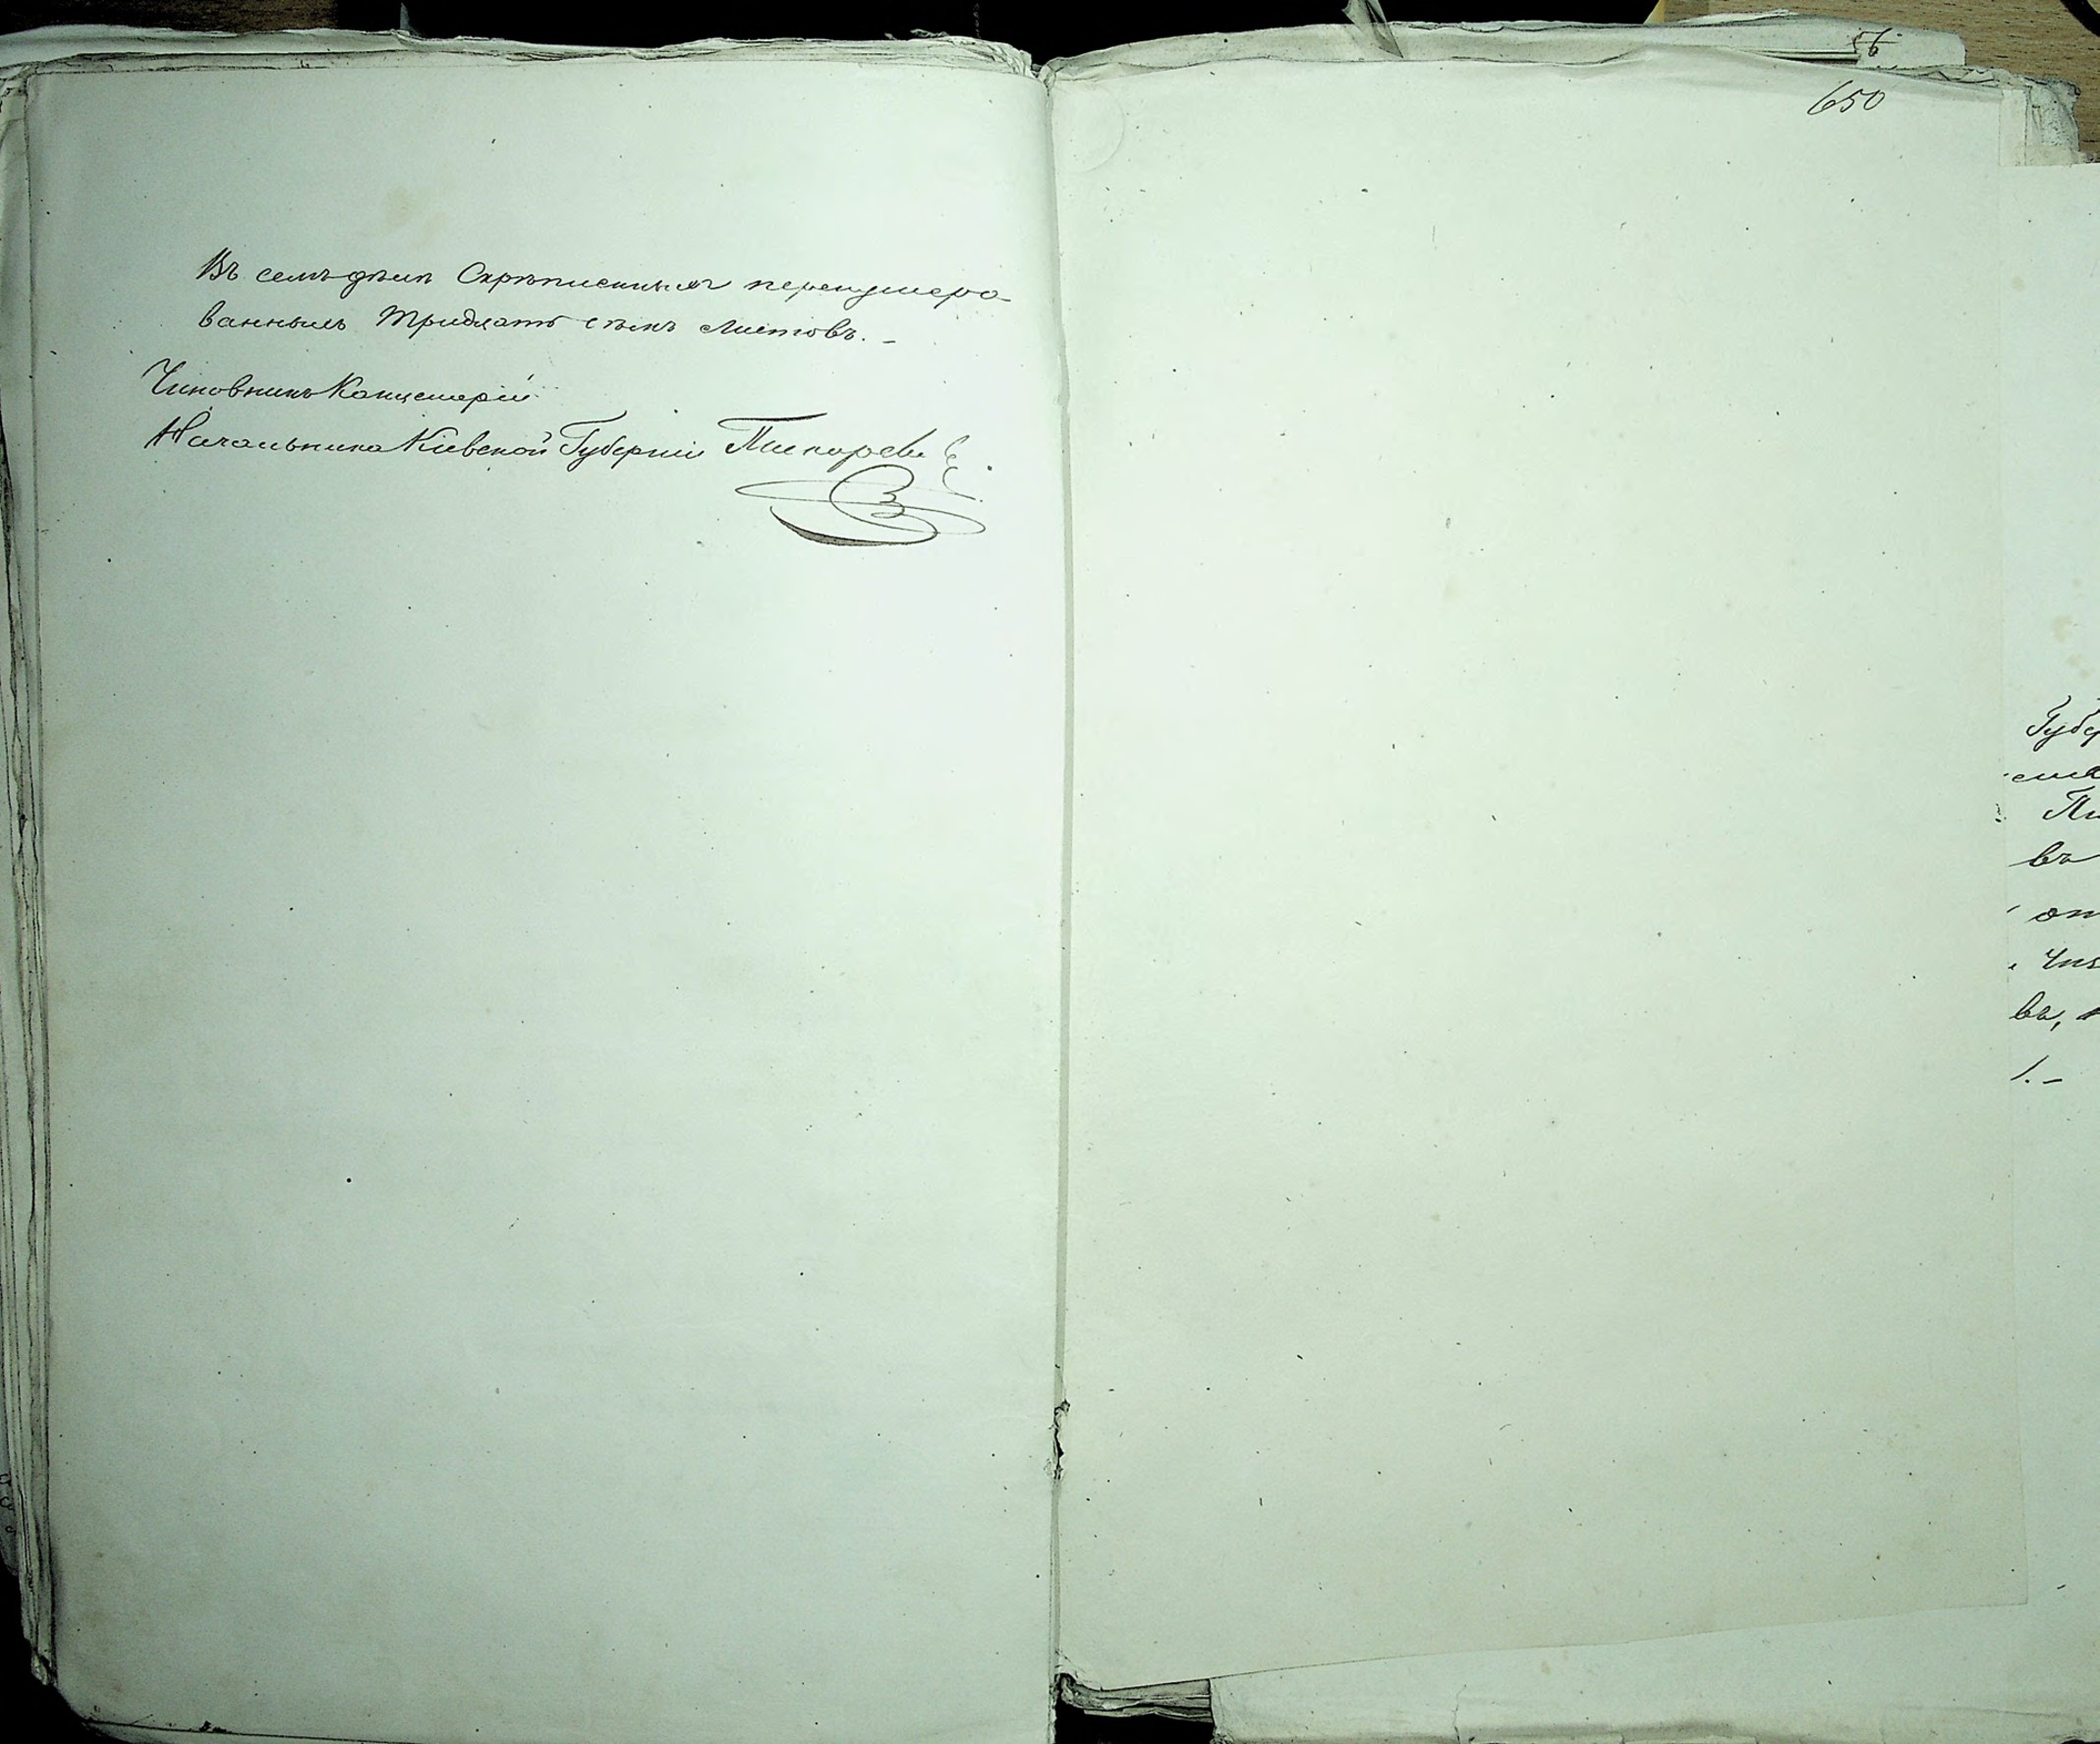 Въ семъ дѣлѣ Скрѣпленныхъ перенумеро-
ванныхъ тридцать листовъ. –
Чиновникъ Канцеляріи
Начальника Кіевской Губерніи
56
650
Губер
Пи
въ
от
въ,
1. –